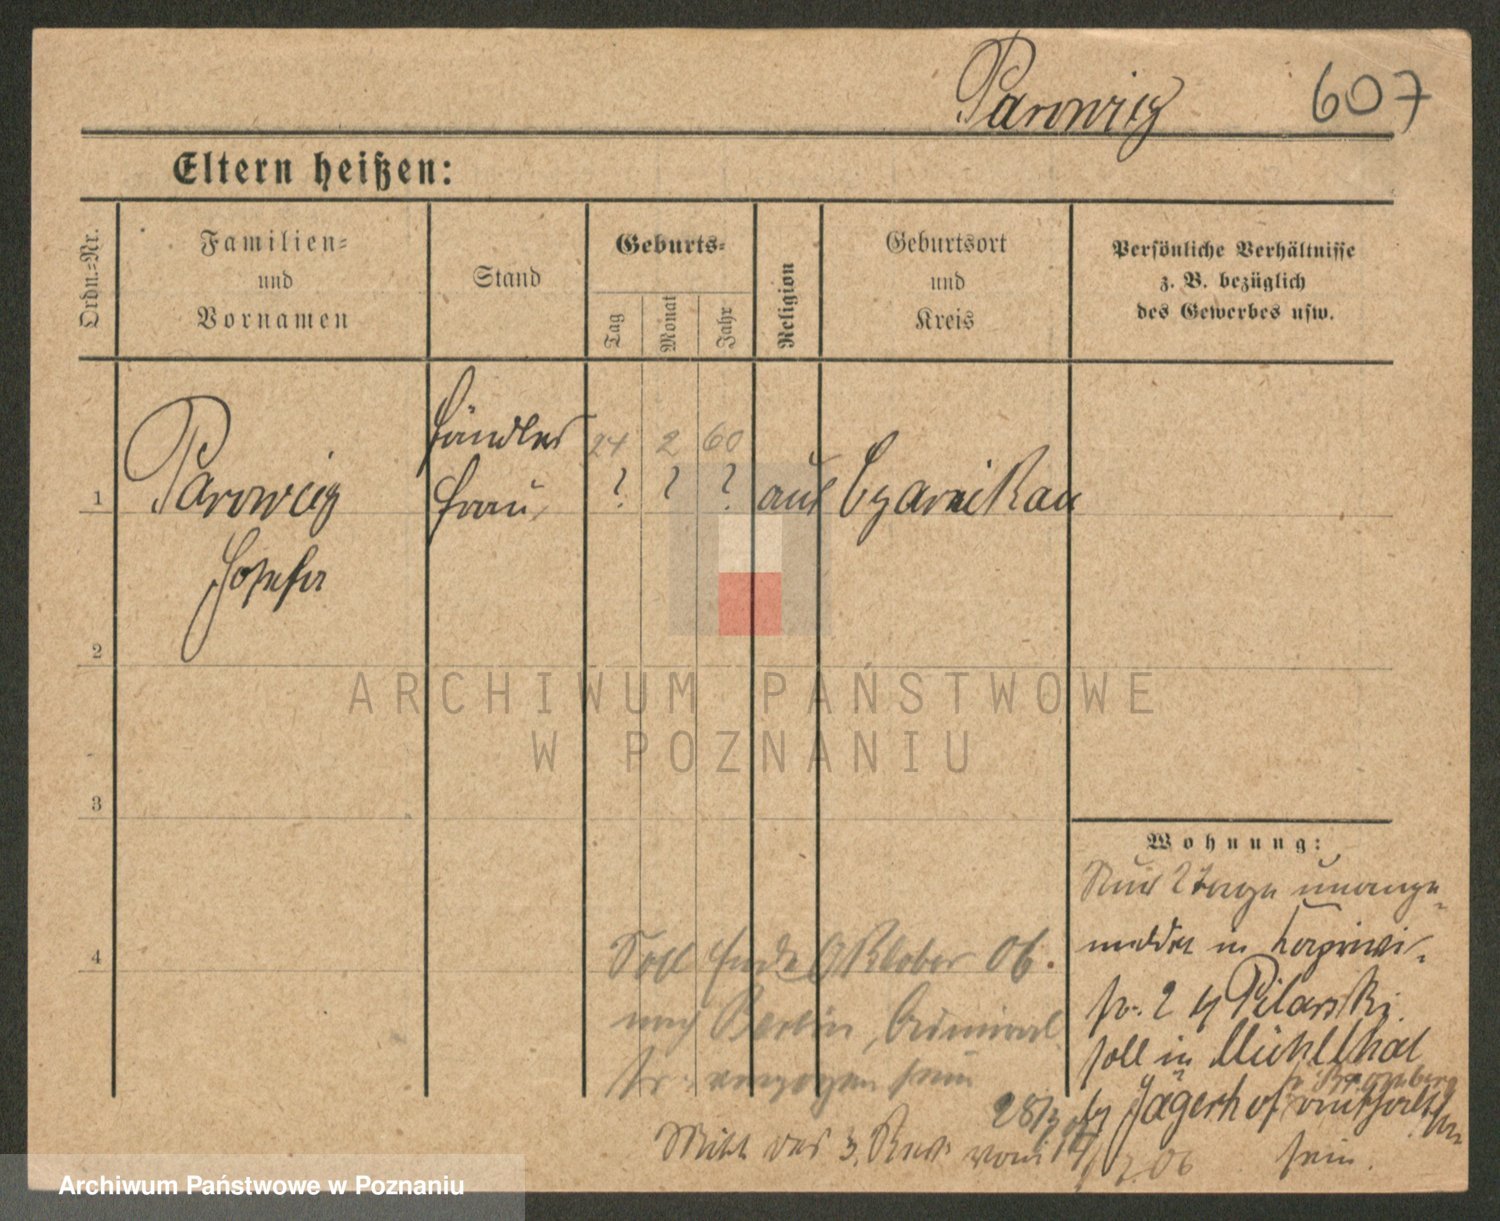 Parowicz 607
Eltern heißen:
Ordn.-Nr.
Familien-
und
Vornamen
Stand
Geburts-
Tag
Monat
Jahr
Religion
Geburtsort
und
Kreis
Persönliche Verhältnisse
z. B. bezüglich
des Gewerbes usw.
Händler 24 2 60
1 Parowicz frau, ? ? ? aus Czarnikau
Josefa
2
3
4
Wohnung:
Nur 2 Tage unange-
meldet in
str. 2 Pilarski.
soll in Mühlthal
Bromberg
Jägerhof
sein.
Soll Ende Oktober 06.
nach Berlin, Admiral
str. verzogen sein
28/3
Mitt. des 3. Rev. vom
06
ARCHIWUM PAŃSTWOWE
W POZNANIU
Archiwum Państwowe w Poznaniu